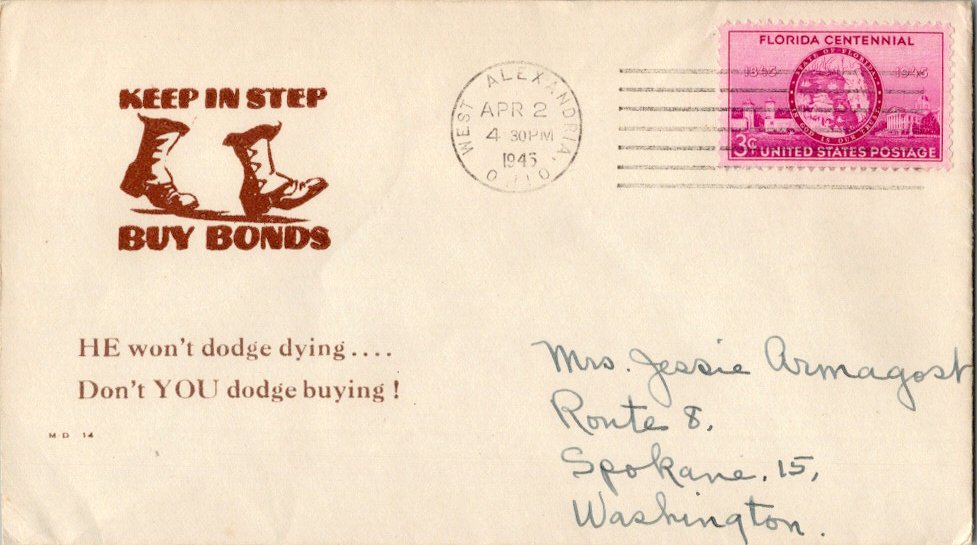 KEEP IN STEP
BUY BONDS
HE won't dodge dying....
Don't YOU dodge buying!
M-D 14
WEST ALEXANDRIA, OHIO
APR 2
4 30 PM
1945
FLORIDA CENTENNIAL
1845 1945
STATE OF FLORIDA
IN GOD IS OUR TRUST
3¢ UNITED STATES POSTAGE
Mrs. Jessie Armagost
Route 8,
Spokane, 15,
Washington.